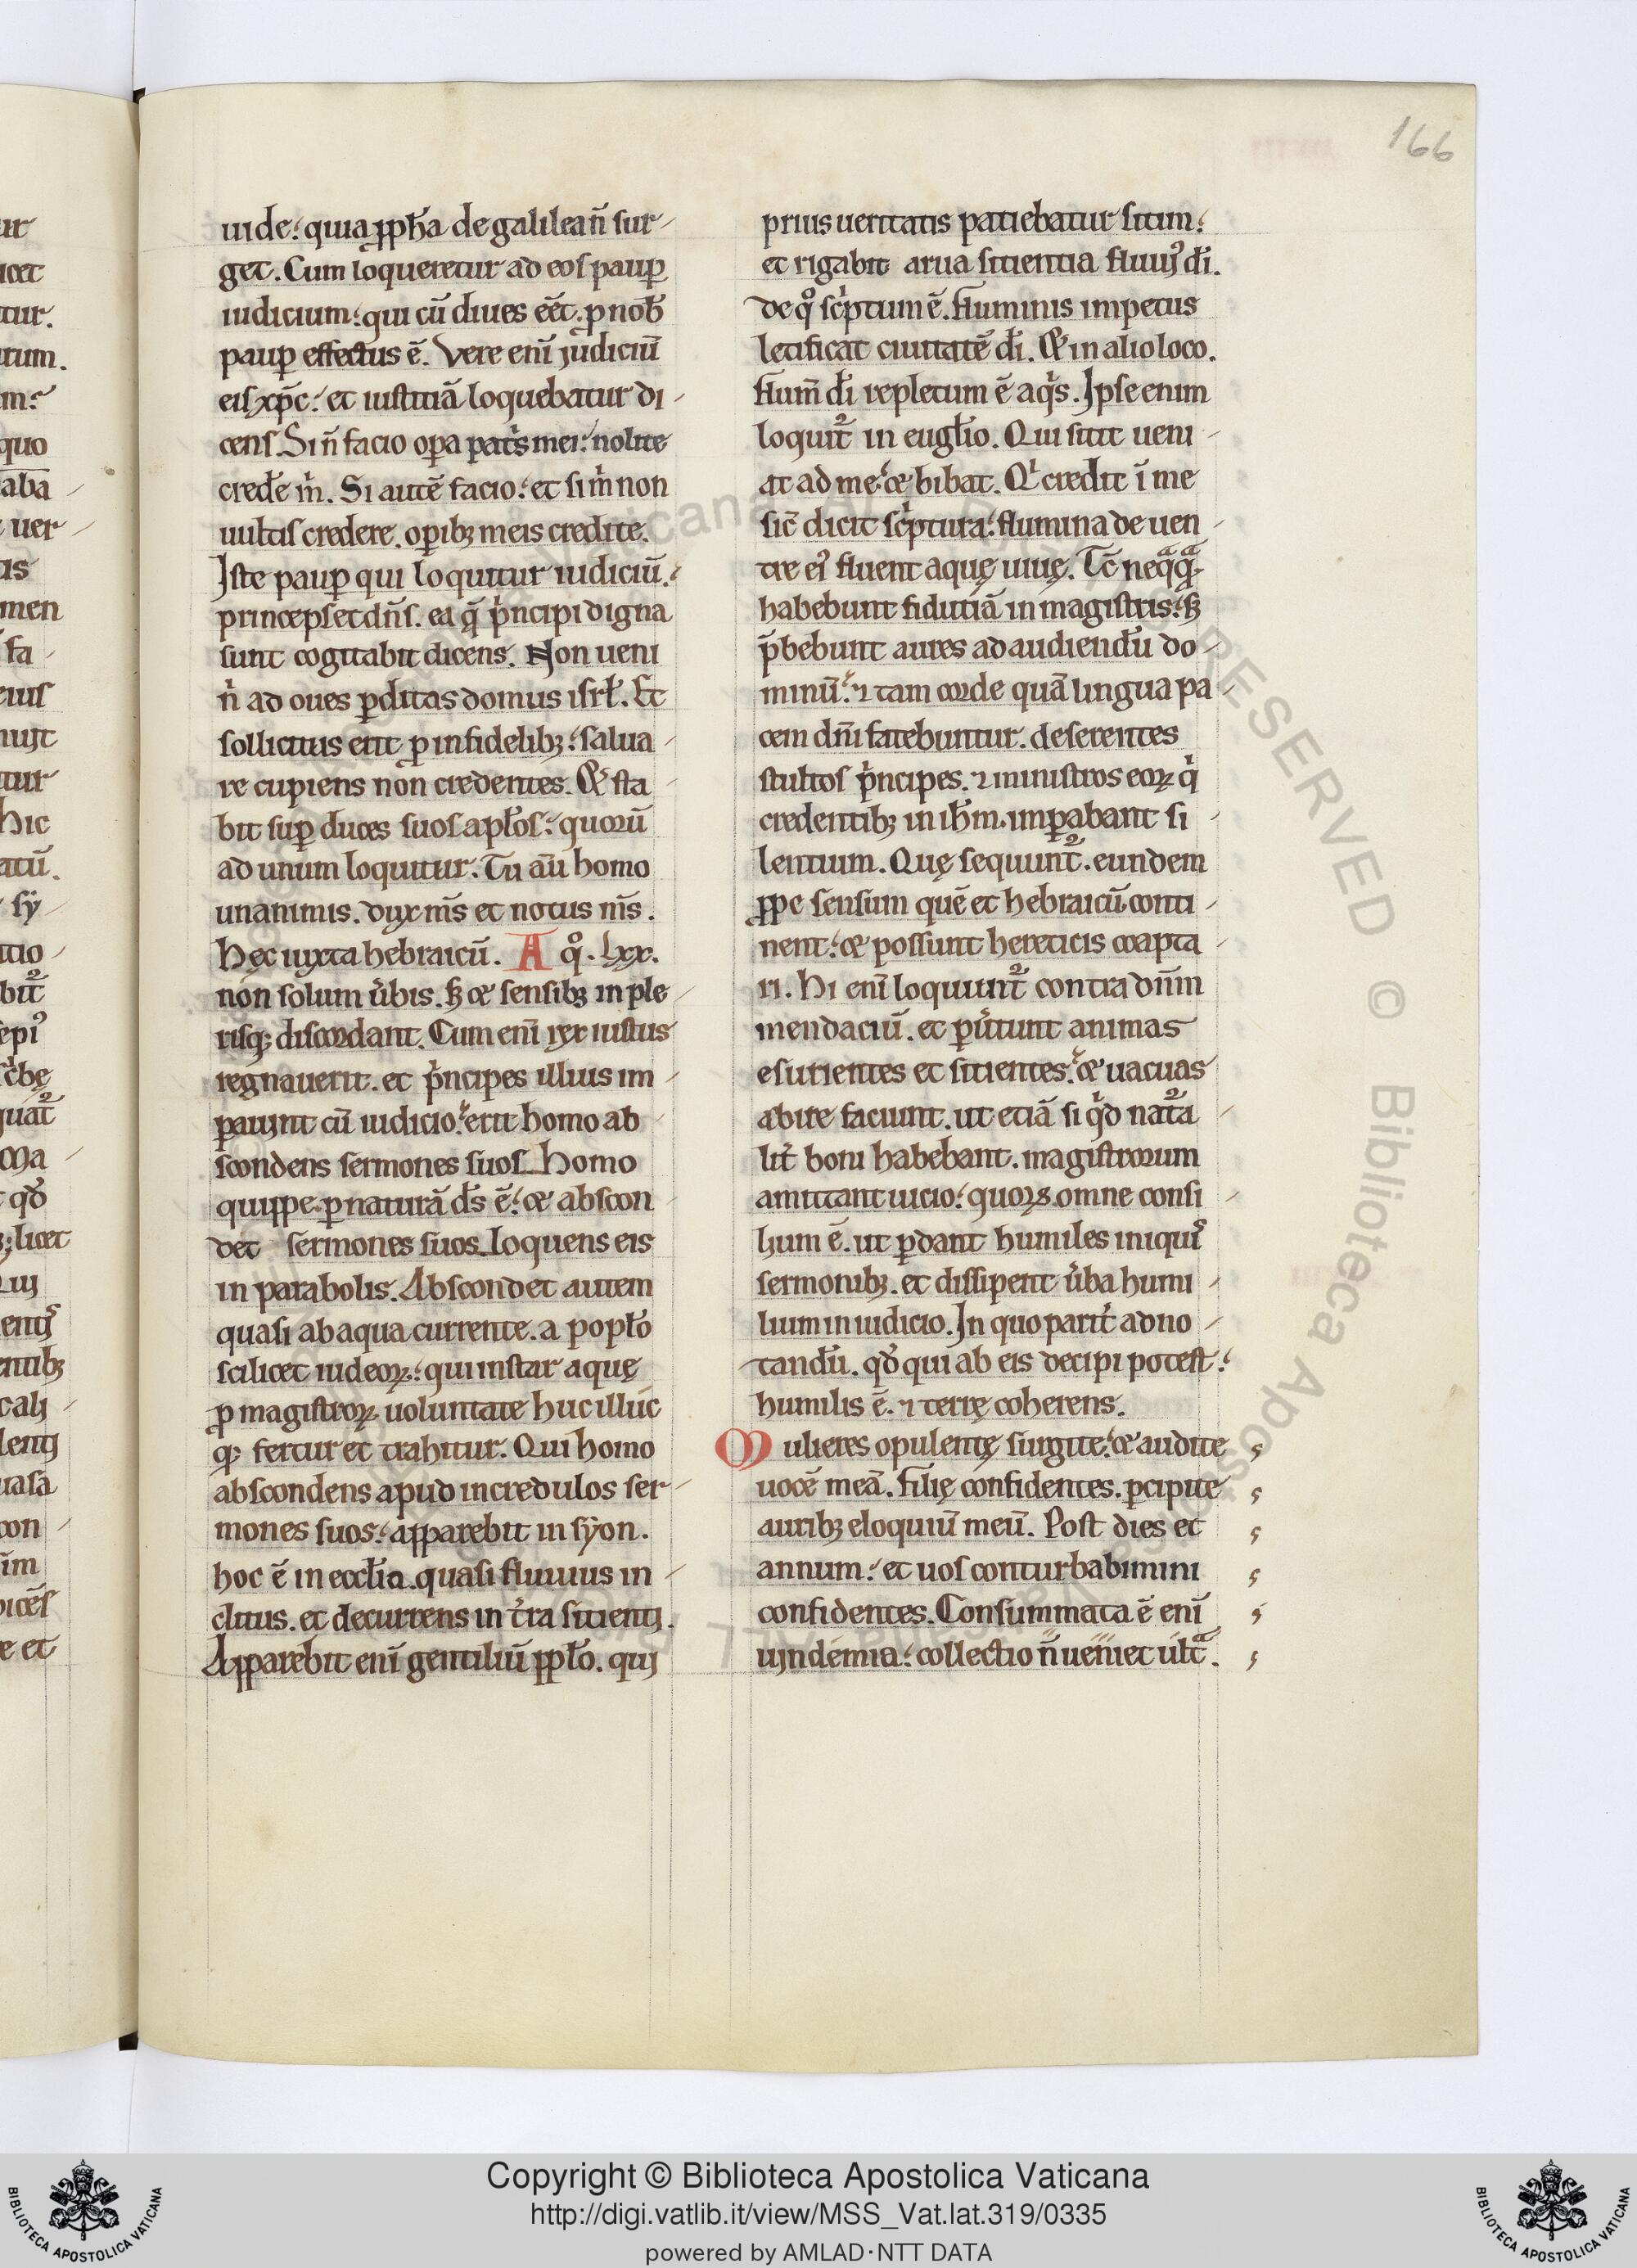 166
uide. quia ꝓph̄a de galilea n̄ sur
get. Cum loqueretur ad eos paup̲
iudicium. qui cū diues eēt. ꝓ nob̄
paup̲ effectus ē. Vere enī iudiciū
eis xp̄c. et iustitiā loquebatur di
cens. Si n̄ facio op̲a pat̄s mei. nolite
cred̄e m̄. Si autē facio. et si m̄ non
uultis credere. op̲ibꝫ meis credite.
Iste paup̲ qui loquitur iudiciū.
princeps et dn̄s. ea q̄ p̄ncipi digna
sunt cogitabit dicens. Non ueni
n̄ ad oues p̲ditas domus isrł. Et
sollicitus erit ꝓ infidelibꝫ. salua
re cupiens non credentes. & sta
bit sup̲ duces suos apłos. quorū
ad unum loquitur. Tu aū homo
unanimis. dux m̄s et notus m̄s.
Hęc iuxta hebraicū. A q̊. lxx.
non solum ūbis. sꝫ & sensibꝫ in ple
risqꝫ discordant. Cum enī rex iustus
regnauerit. et p̄ncipes illius im
p̲auint cū iudicio. erit homo ab
scondens sermones suos. Homo
quippe. ꝓ naturā d̄s ē. & abscon
det sermones suos. loquens eis
in parabolis. Abscondet autem
quasi ab aqua currente. a popło
scilicet iudeoꝝ. qui instar aquę
ꝓ magistroꝝ uoluntate huc illuc
qꝫ fertur et trahitur. Qui homo
abscondens apud incredulos ser
mones suos. apparebit in syon.
hoc ē in ecclīa. quasi fluuius in
clitus. et decurrens in t̄ra sitienti.
Apparebit enī gentiliū ppło. qui
prius ueritatis patiebatur sitim.
et rigabit arua sitientia fluuiꝰ d̄i.
de q̊ sc̄ptum ē. Fluminis impetus
letificat ciuitatē d̄i. & in alio loco.
Flum̄ d̄i repletum ē aq̄s. Ipse enim
loquit᷑ in eugłio. Qui sitit ueni
at ad me. & bibat. Qͥ credit ī me
sic̄ dicit sc̄ptura. flumina de uen
tre eiꝰ fluent aquę uiuę. Tc̄ neqͣqͣ
habebunt fidutiā in magistris. sꝫ
p̄bebunt aures ad audiendū do
minū. ⁊ tam corde quā lingua pa
cem dn̄i fatebuntur. deserentes
stultos p̄ncipes. ⁊ ministros eoꝝ qͥ
credentibꝫ in ih̄m. imp̲abant si
lentium. Quę sequunt᷑. eundem
ꝓpe sensum quē et hebraicū conti
nent. & possunt hereticis coapta
ri. Hi enī loquunt᷑ contra dn̄m
mendaciū. et p̲ūtunt animas
esurientes et sitientes. & uacuas
abire faciunt. ut etiā si qͥd nat᷑a
lit̄ boni habebant. magistrorum
amittant uicio. quoꝝ omne consi
lium ē. ut p̲dant humiles iniquis
sermonibꝫ. et dissipent ūba humi
lium in iudicio. In quo parit̄ adno
tandū. qd̄ qui ab eis decipi potest.
humilis ē. ⁊ terrę coherens.
Mulieres opulentę surgite. & audite
uocē meā. Filię confidentes. p̲cipite
auribꝫ eloquiū meū. Post dies et
annum. et uos conturbabimini
confidentes. Consummata ē enī
uindemia. collectio n̄ ueniet ult̄ͣ.
Copyright © Biblioteca Apostolica Vaticana
http://digi.vatlib.it/view/MSS_Vat.lat.319/0335
powered by AMLAD·NTT DATA
BIBLIOTECA APOSTOLICA VATICANA
BIBLIOTECA APOSTOLICA VATICANA